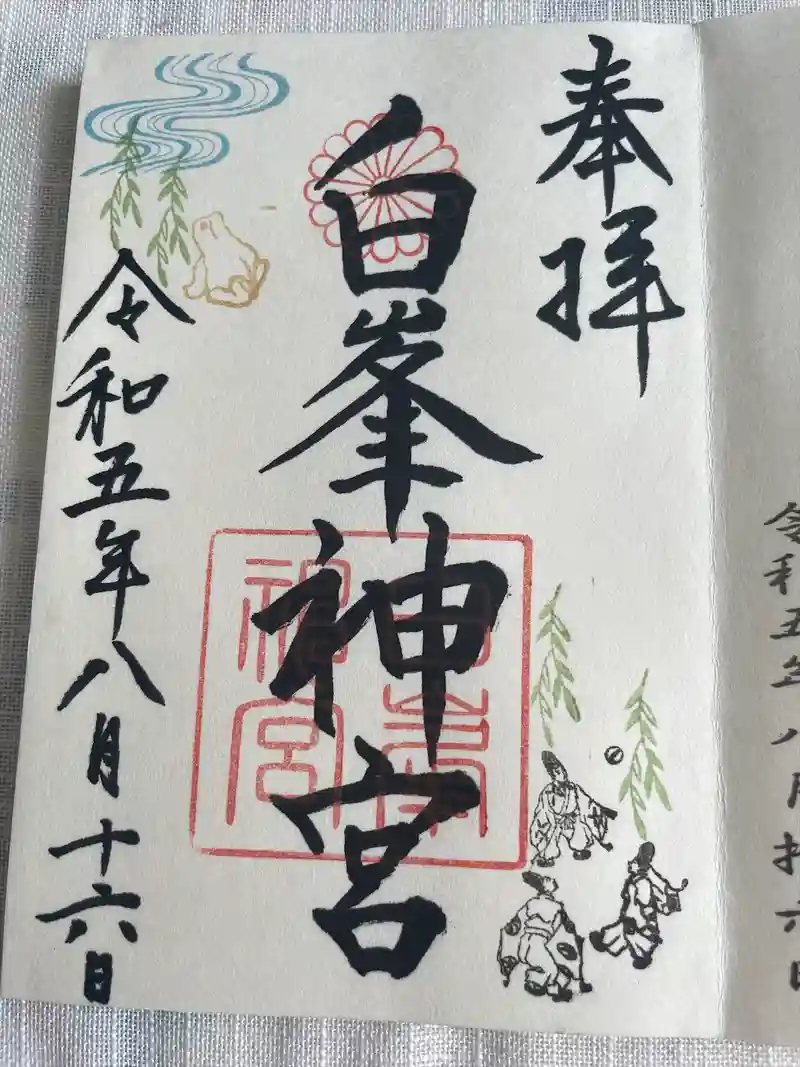 奉拝
白峯神宮
白峯神宮
令和五年八月十六日
令和五年八月拾六日